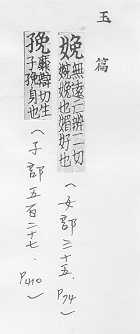 玉篇
娩 無遠亡辨二切
婉娩也媚好也
(女部三十五. P74)
切生
子㝃身也
(子部五百二十七. P410)